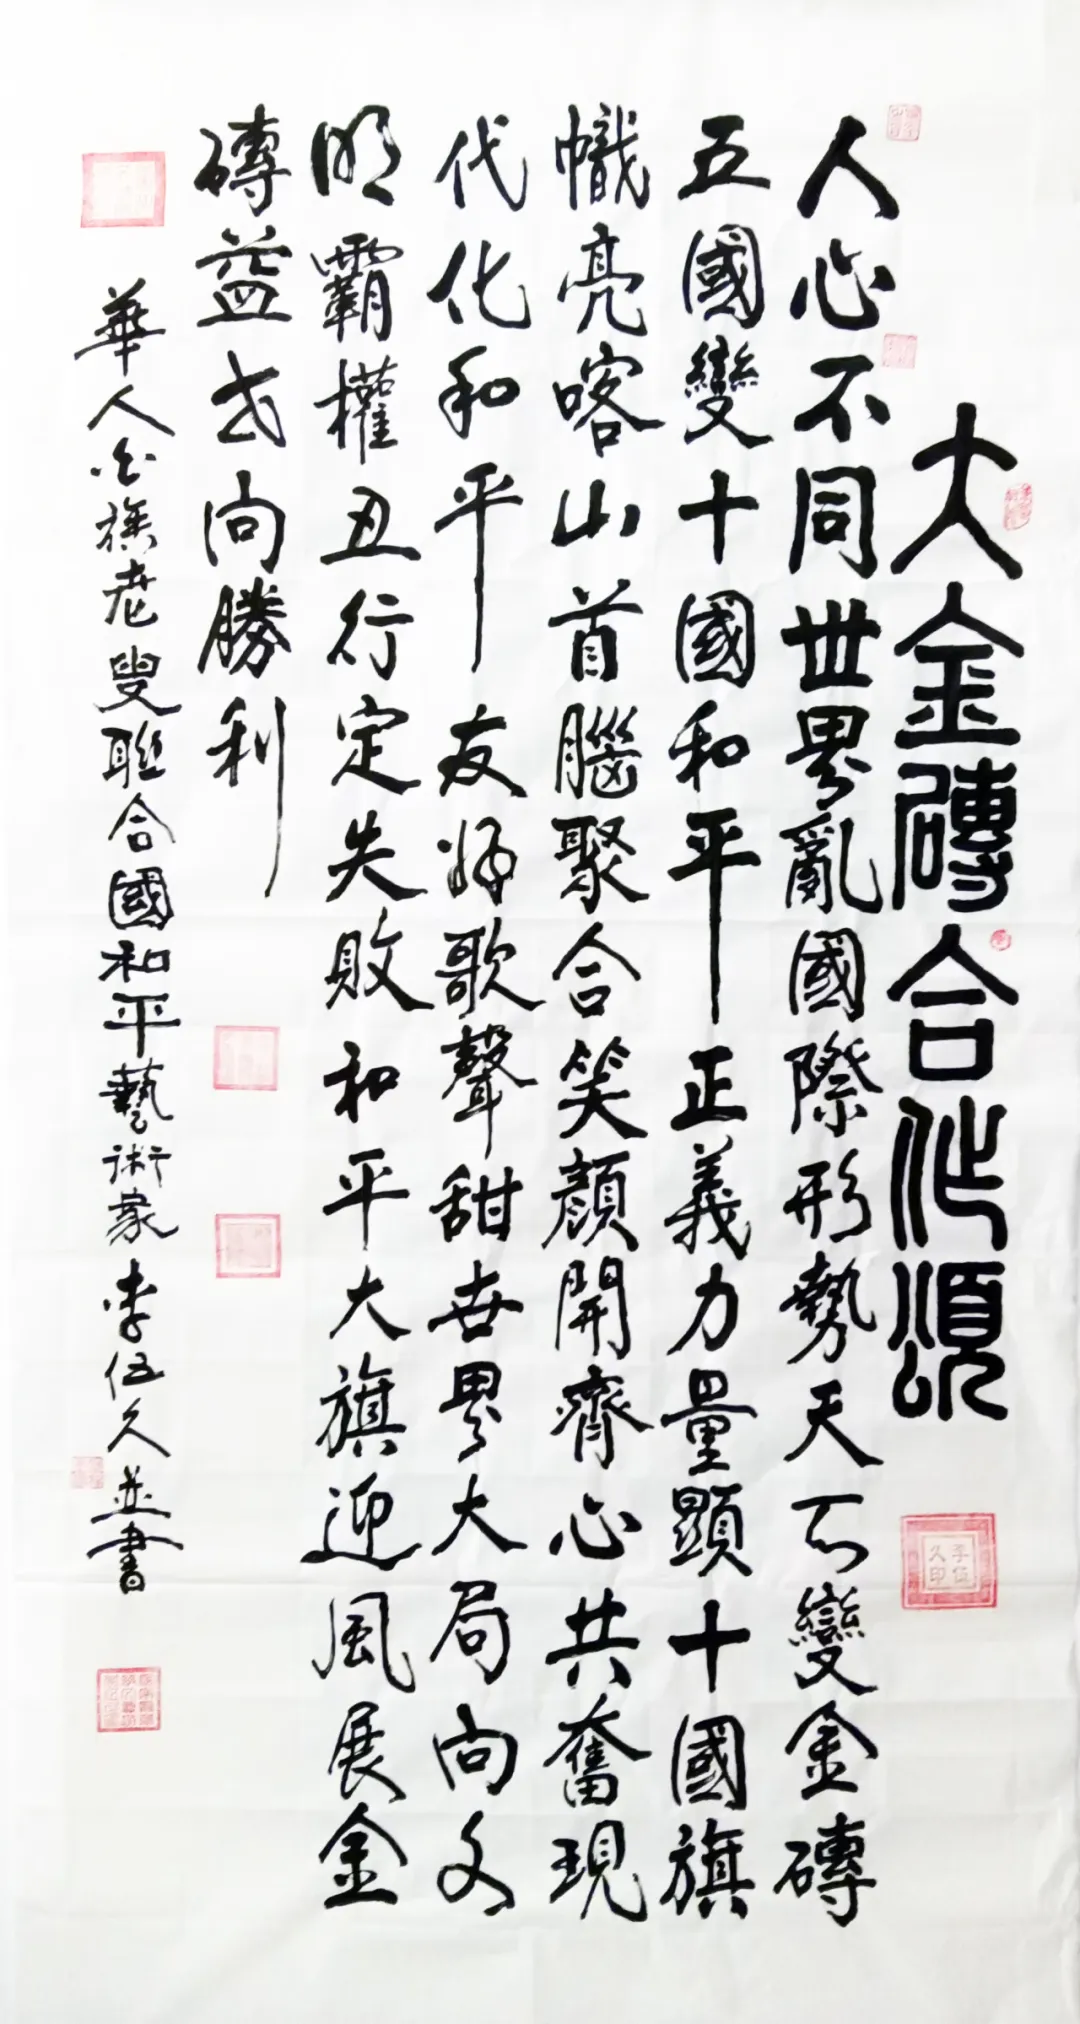 大金磚合作頌
人心不同世界亂國際形勢天天變金磚
五國變十國和平正義力量顯十國旗
幟亮喀山首腦聚合笑顏開齊心共奮現
代化和平友好歌聲甜世界大局向文
明霸權丑行定失敗和平大旗迎風展金
磚益式向勝利
華人台族老叟聯合國和平藝術家李伍久並書
李伍久印